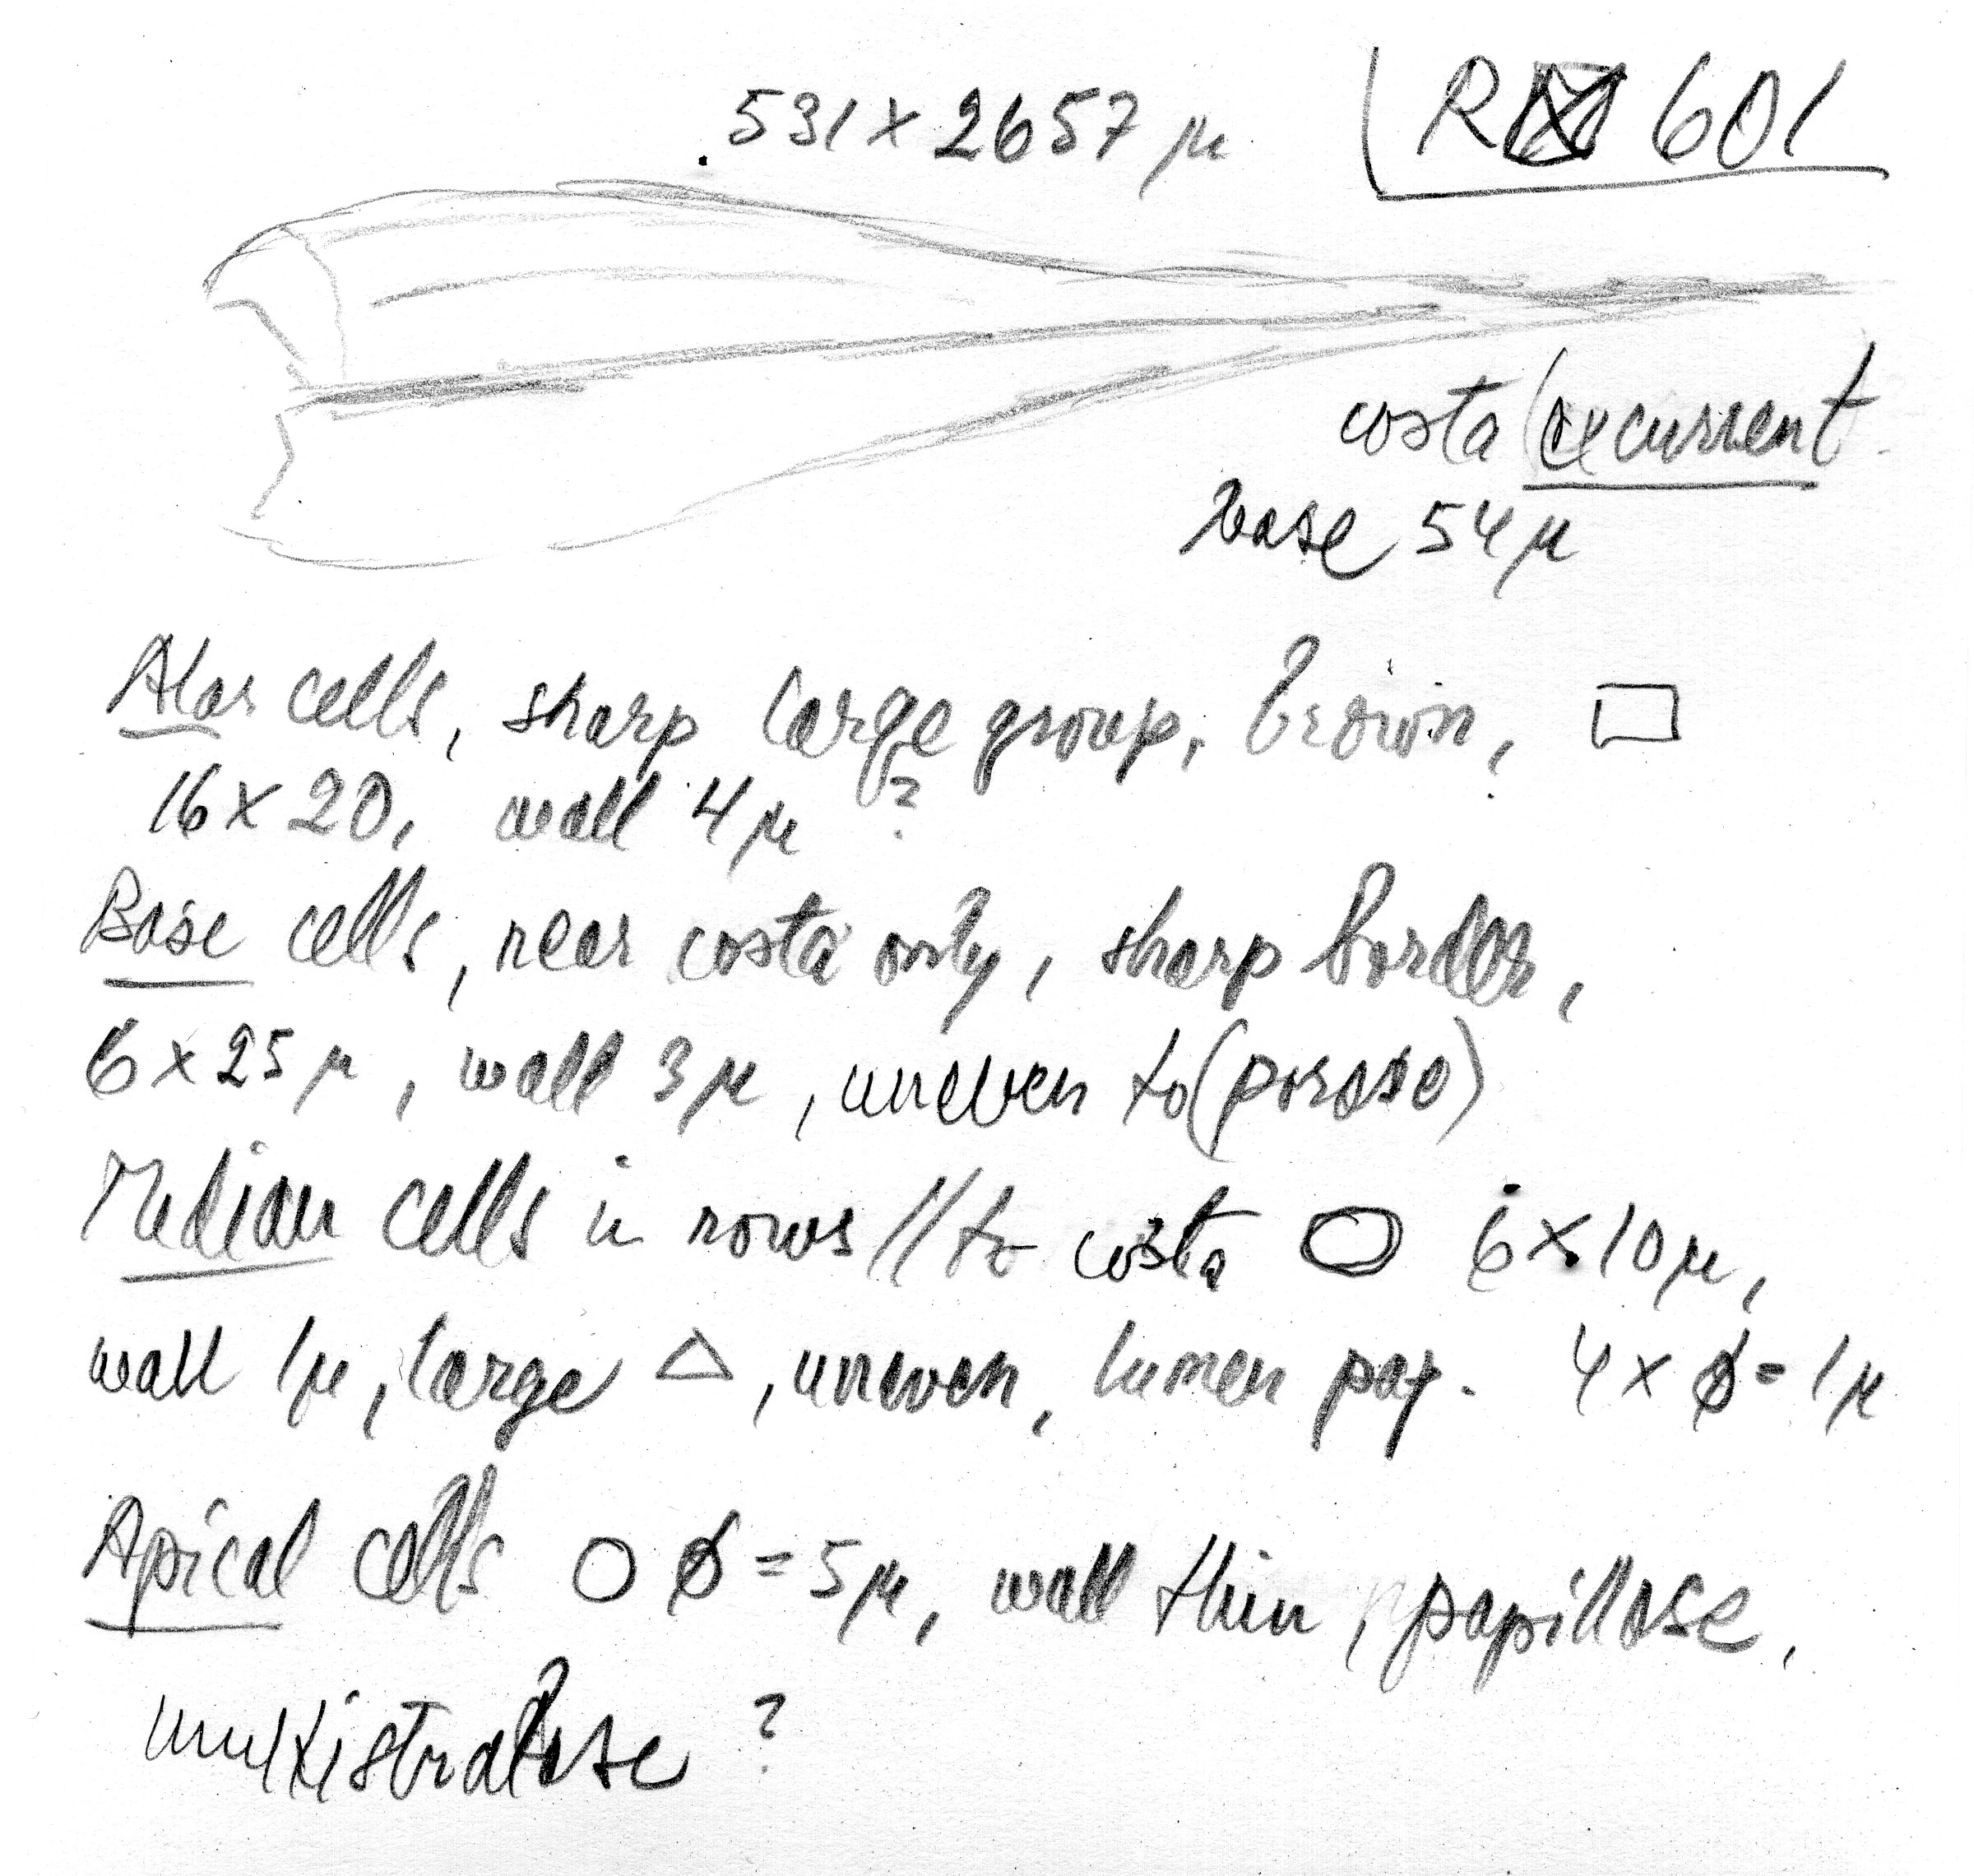 531 x 2657 µ
R 601
costa (excurrent
base 54 µ
Alar cells, sharp large group, brown, ▭
16 x 20, wall 4 µ ?
Base cells, near costa only, sharp border,
6 x 25 µ, wall 3 µ, uneven to (porose)
Median cells in rows // to costa ○ 6 x 10 µ,
wall 1µ, large △, uneven, lumen pap. 4 x ø = 1µ
Apical cells ○ ø = 5 µ, wall thin, papillose,
multistratose ?